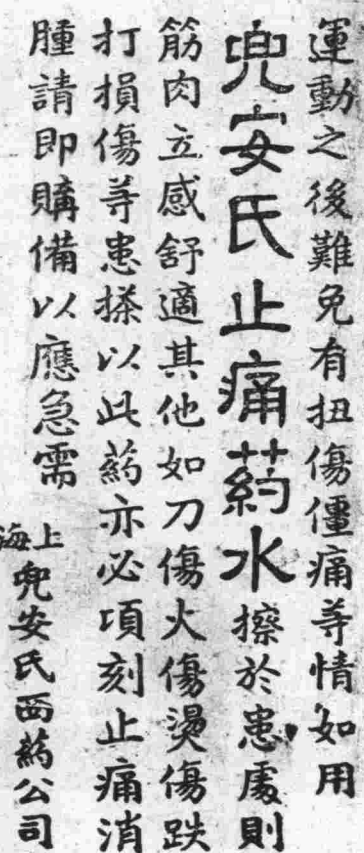 運動之後難免有扭傷僵痛等情如用
兜安氏止痛葯水擦於患處則
筋肉立感舒適其他如刀傷火傷燙傷跌
打損傷等患搽以此葯亦必頃刻止痛消
腫請即購備以應急需
上海
兜安氏西葯公司